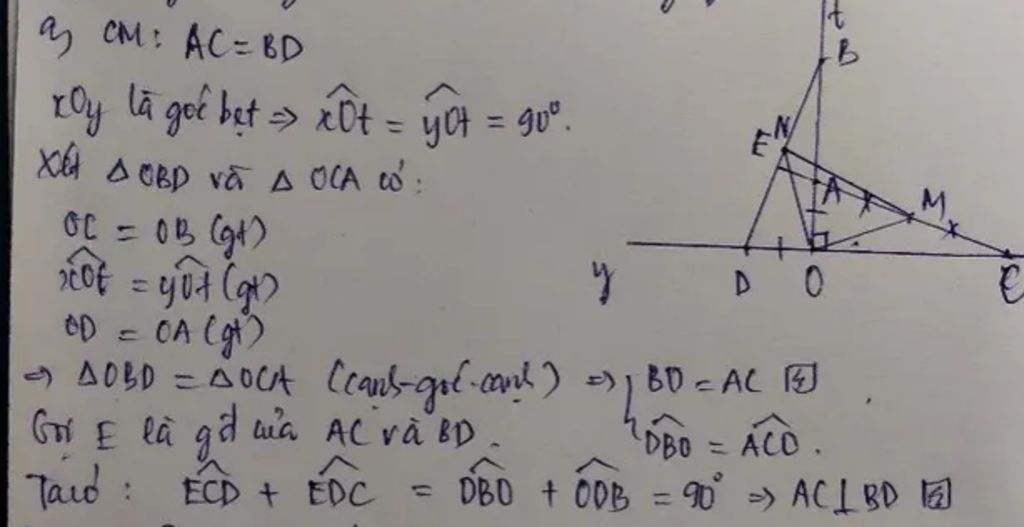 a, CM: AC = BD
xOy là góc bẹt ⇒ xOt = yOt = 90°.
Xét ΔOBD và ΔOCA có:
OC = OB (gt)
xOt = yOt (gt)
OD = OA (gt)
⇒ ΔOBD = ΔOCA (cạnh-góc-cạnh) ⇒ { BD = AC
DBO = ACO.
Gọi E là gđ của AC và BD.
Ta có: ECD + EDC = DBO + ODB = 90° ⇒ AC ⊥ BD
t
B
N
E
A
M
y
D
O
C